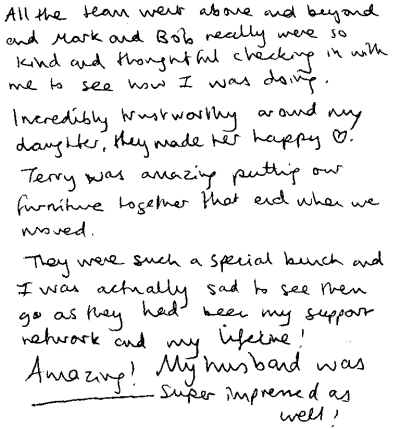 All the team went above and beyond
and Mark and Bob really were so
kind and thoughtful checking in with
me to see how I was doing.
Incredibly trustworthy around my
daughter, they made her happy ♡.
Terry was amazing putting our
furniture together that end when we
moved.
They were such a special bunch and
I was actually sad to see them
go as they had been my support
network and my lifeline!
Amazing! My husband was
super impressed as
well!